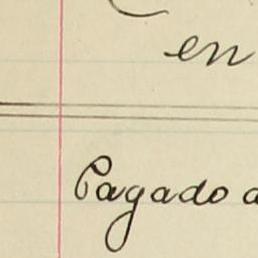 en
Pagado a